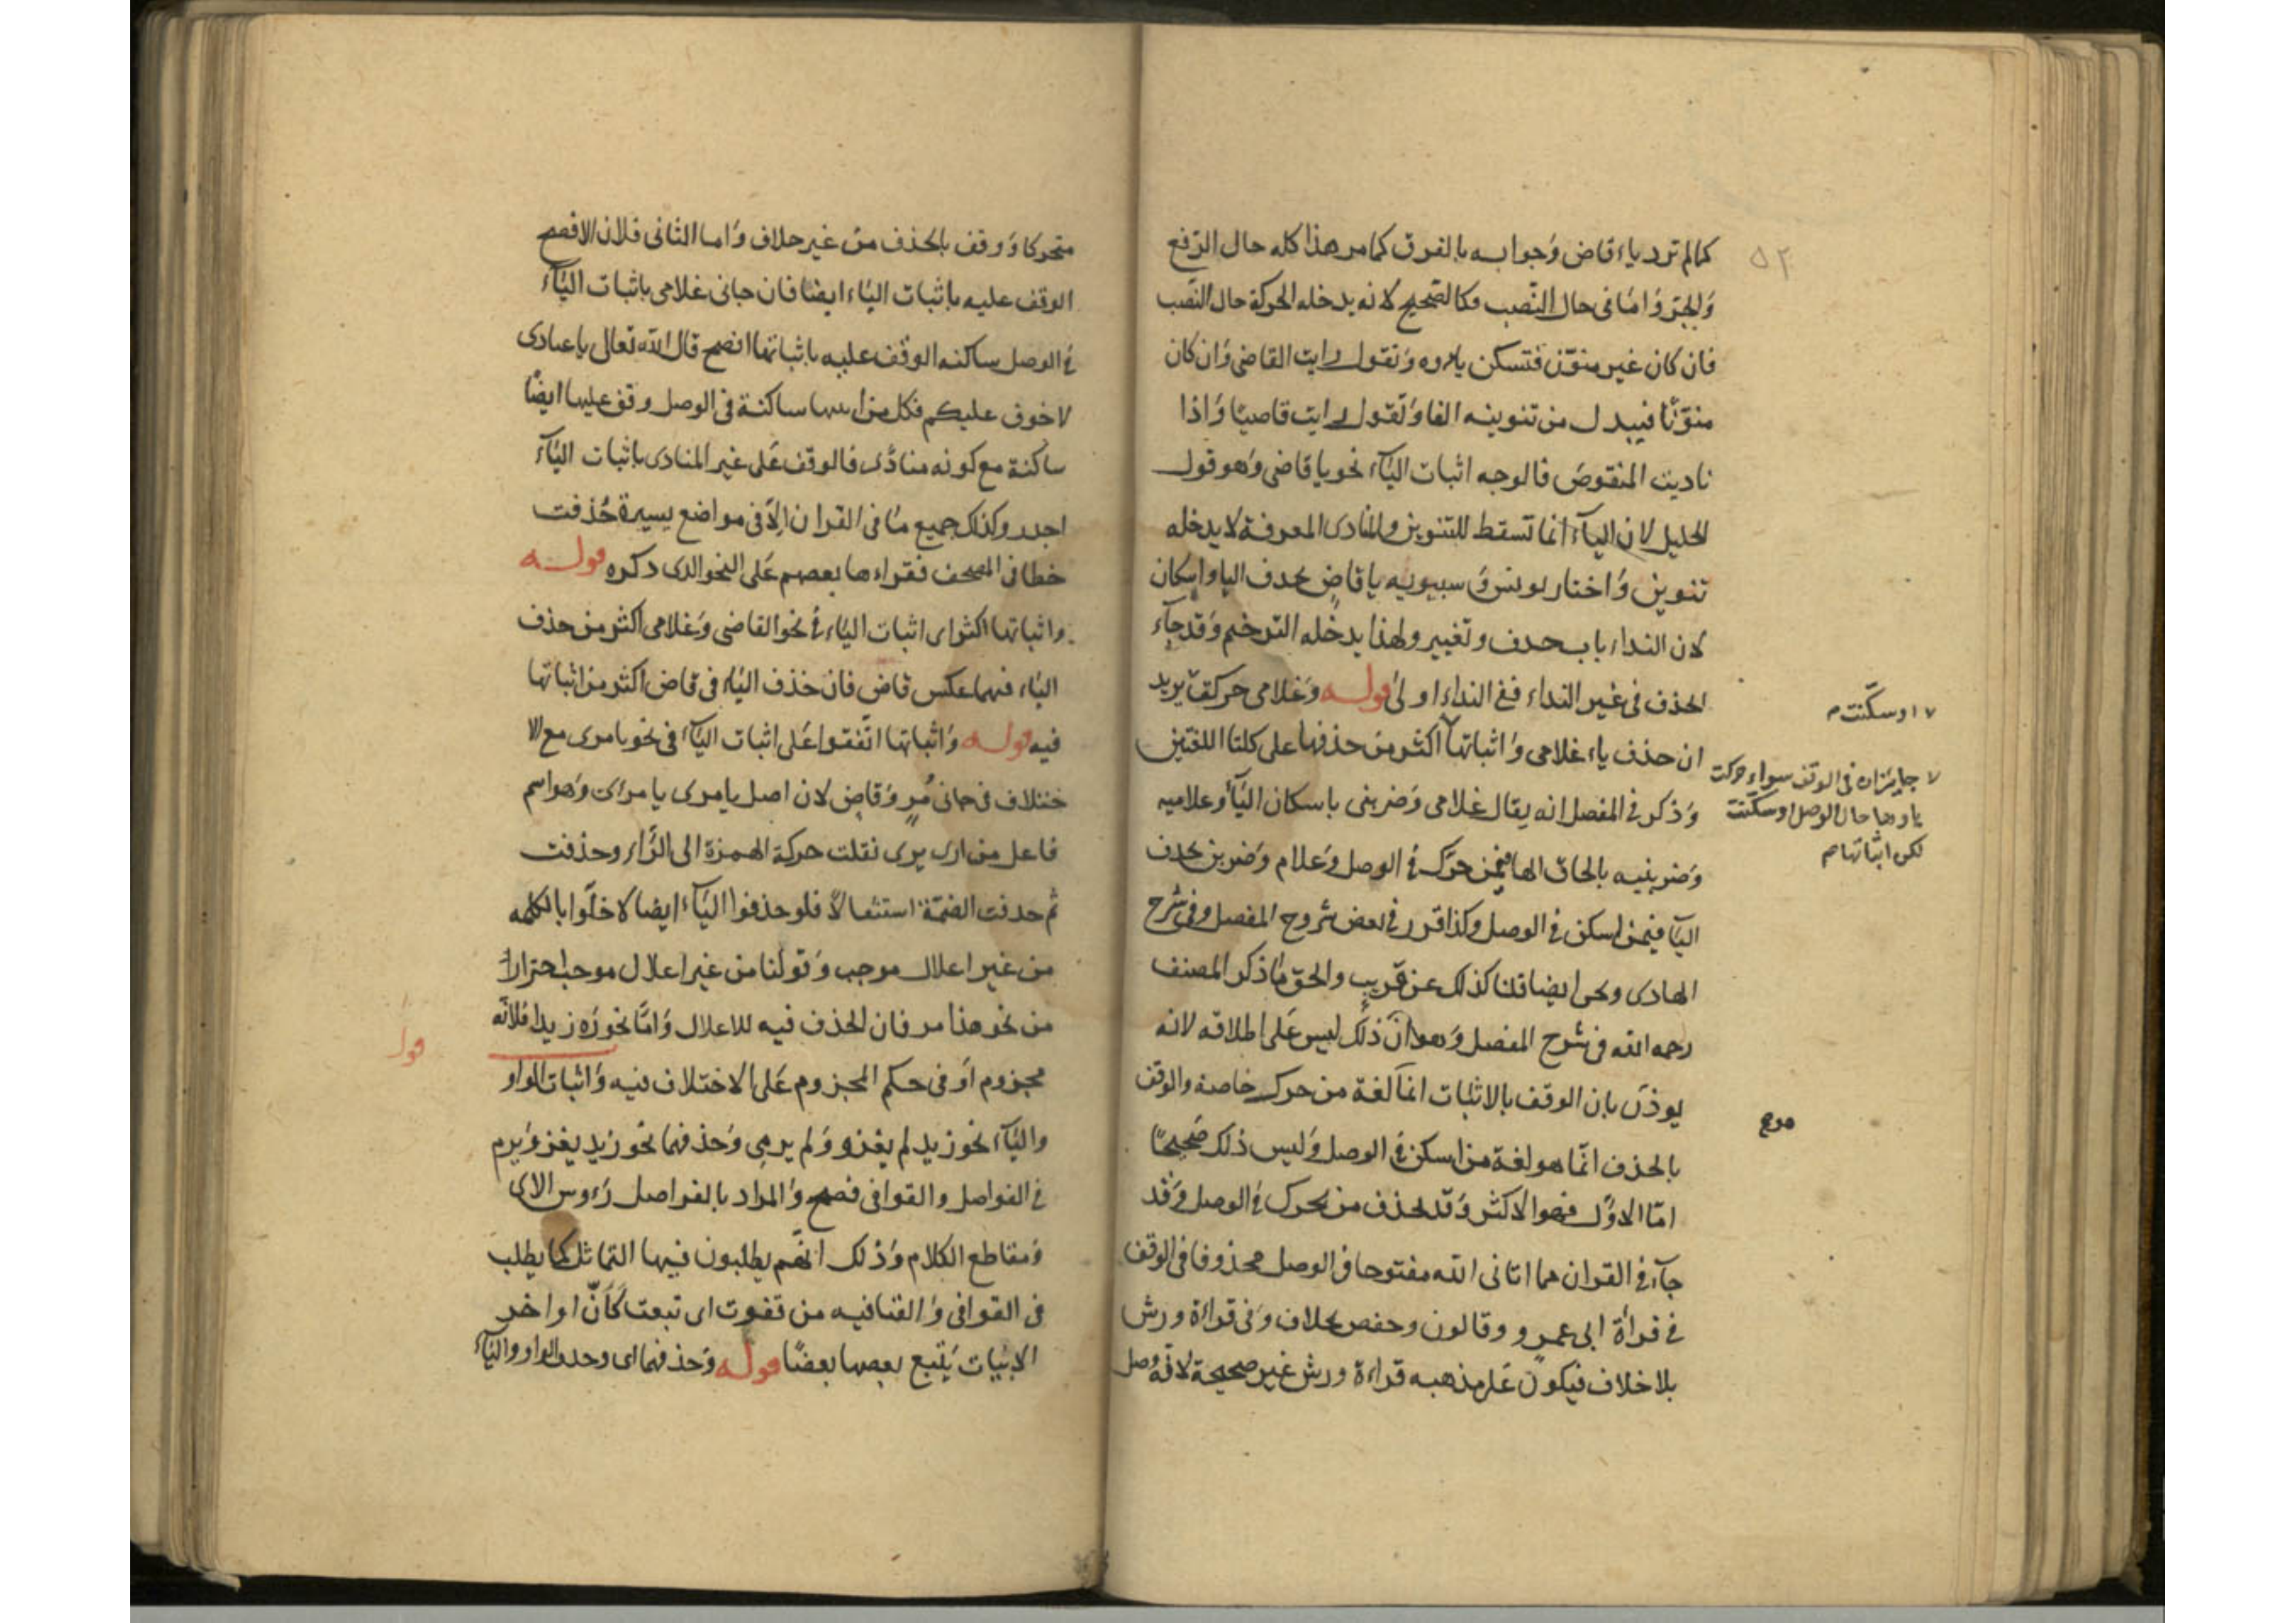 ٥٢
كما لم ترد ياء قاض وجوابه بالفرق كما مر هذا كله حال الرفع
والجر وامّا فى حال النصب فكالصحيح لانه يدخله الحركة حال النصب
فان كان غير منوّن فتسكن ياؤه وتقول رايت القاضى وان كان
منوّنًا فيبدل من تنوينه الفا وتقول رايت قاضيًا واذا
ناديت المنقوص فالوجه اثبات اليآء نحو يا قاضى وهو قول
الخليل لان اليآء انما تسقط للتنوين والمنادى المعرفة لا يدخله
تنوين واختار يونس و سيبويه يا قاضِ بحذف اليا واسكان
لان النداء باب حذف وتغيير ولهذا يدخله الترخيم وقد جآء
الحذف فى غير النداء ففى النداء اولى قوله وغلامى حركت يريد
اوسكّنت م
ان حذف ياء غلامى واثباتها اكثر من حذفها على كلتا اللغتين
جايزان فى الوقف سواء حركت
ياوها حال الوصل او سكّنت
لكن اثباتها م
وذكر فى المفصل انه يقال غلامى وضربنى باسكان اليآء وغلاميه
وضربنيه بالحاق الها فيمن حرّك فى الوصل وغلام وضربن بحذف
اليآ فيمن اسكن فى الوصل وكذا قرر فى بعض شروح المفصل وفى شرح
الهادى ونحن ايضا قلنا كذلك عن قريب والحق ما ذكر المصنف
رحمه الله فى شرح المفصل وهو انّ ذلك ليس على اطلاقه لانه
يوذن بان الوقف بالاثبات انما لغة من حرك خاصة والوقف
بالحذف انّما هو لغة من اسكن فى الوصل وليس ذلك صحيحًا
امّا الاوّل فهو الاكثر وقد يحذف من يحرك فى الوصل وقد
جآء فى القران فما اتانى الله مفتوحا فى الوصل محذوفا فى الوقف
فى قراة ابى عمرو وقالون وحفص بخلاف وفى قراءة ورش
بلا خلاف فيكون على مذهبه قراءة ورش غير صحيحة لانّه وصل
متحركا ووقف بالحذف من غير خلاف واما الثانى فلان الافصح
الوقف عليه باثبات الياء ايضا فان جانى غلامى باثبات اليآء
فى الوصل ساكنه الوقف عليه باثباتها افصح قال الله تعالى يا عبادى
لا خوف عليكم فكل من اثبتها ساكنة فى الوصل وقف عليها ايضًا
ساكنة مع كونه منادًى فالوقف على غير المنادى باثبات اليآء
اجدر وكذلك جميع ما فى القران الّا فى مواضع يسيرة حُذفت
خطا فى المصحف فقراءها بعضهم على النحو الذى ذكره قوله
واثباتها اكثر اى اثبات الياء فى نحو القاضى وغلامى اكثر من حذف
الياء فيهما عكس قاض فان حذف الياء فى قاض اكثر من اثباتها
فيه قوله واثباتها اتّفقوا على اثبات اليآء فى نحو يا مرى مع الا
ختلاف فى جانى مُرٍ وقاضٍ لان اصل يا مرى يا مرأى وهو اسم
فاعل من ارى يرى نقلت حركة الهمزة الى الرّاء وحذفت
ثم حذفت الضمّة استثقالًا فلو حذفوا اليآء ايضا لاخلّوا بالكلمه
من غير اعلال موجب وقولنا من غير اعلال موجب احترازا
من نحو هذا مر فان الحذف فيه للاعلال وامّا نحو رَه زيدا فلانّه
مجزوم أو فى حكم المجزوم على الاختلاف فيه واثبات الواو
واليآء نحو زيد لم يغزو ولم يرمى وحذفهما نحو زيد يغز ويرم
فى الفواصل والقوافى فصيح والمراد بالفواصل رءوس الآى
ومقاطع الكلام وذلك انّهم يطلبون فيها التماثل كما يطلب
فى القوافى والقافيه من تقفوت اى تبعت كأنّ اواخر
الابيات يتبع بعضها بعضًا قوله وحذفهما اى وحذف الواو واليآء